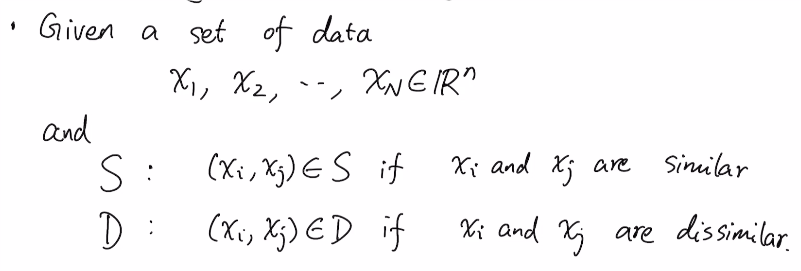 · Given a set of data
x₁, x₂, ··, x_N ∈ ℝⁿ
and
S : (xᵢ, xⱼ) ∈ S if xᵢ and xⱼ are similar
D : (xᵢ, xⱼ) ∈ D if xᵢ and xⱼ are dissimilar.